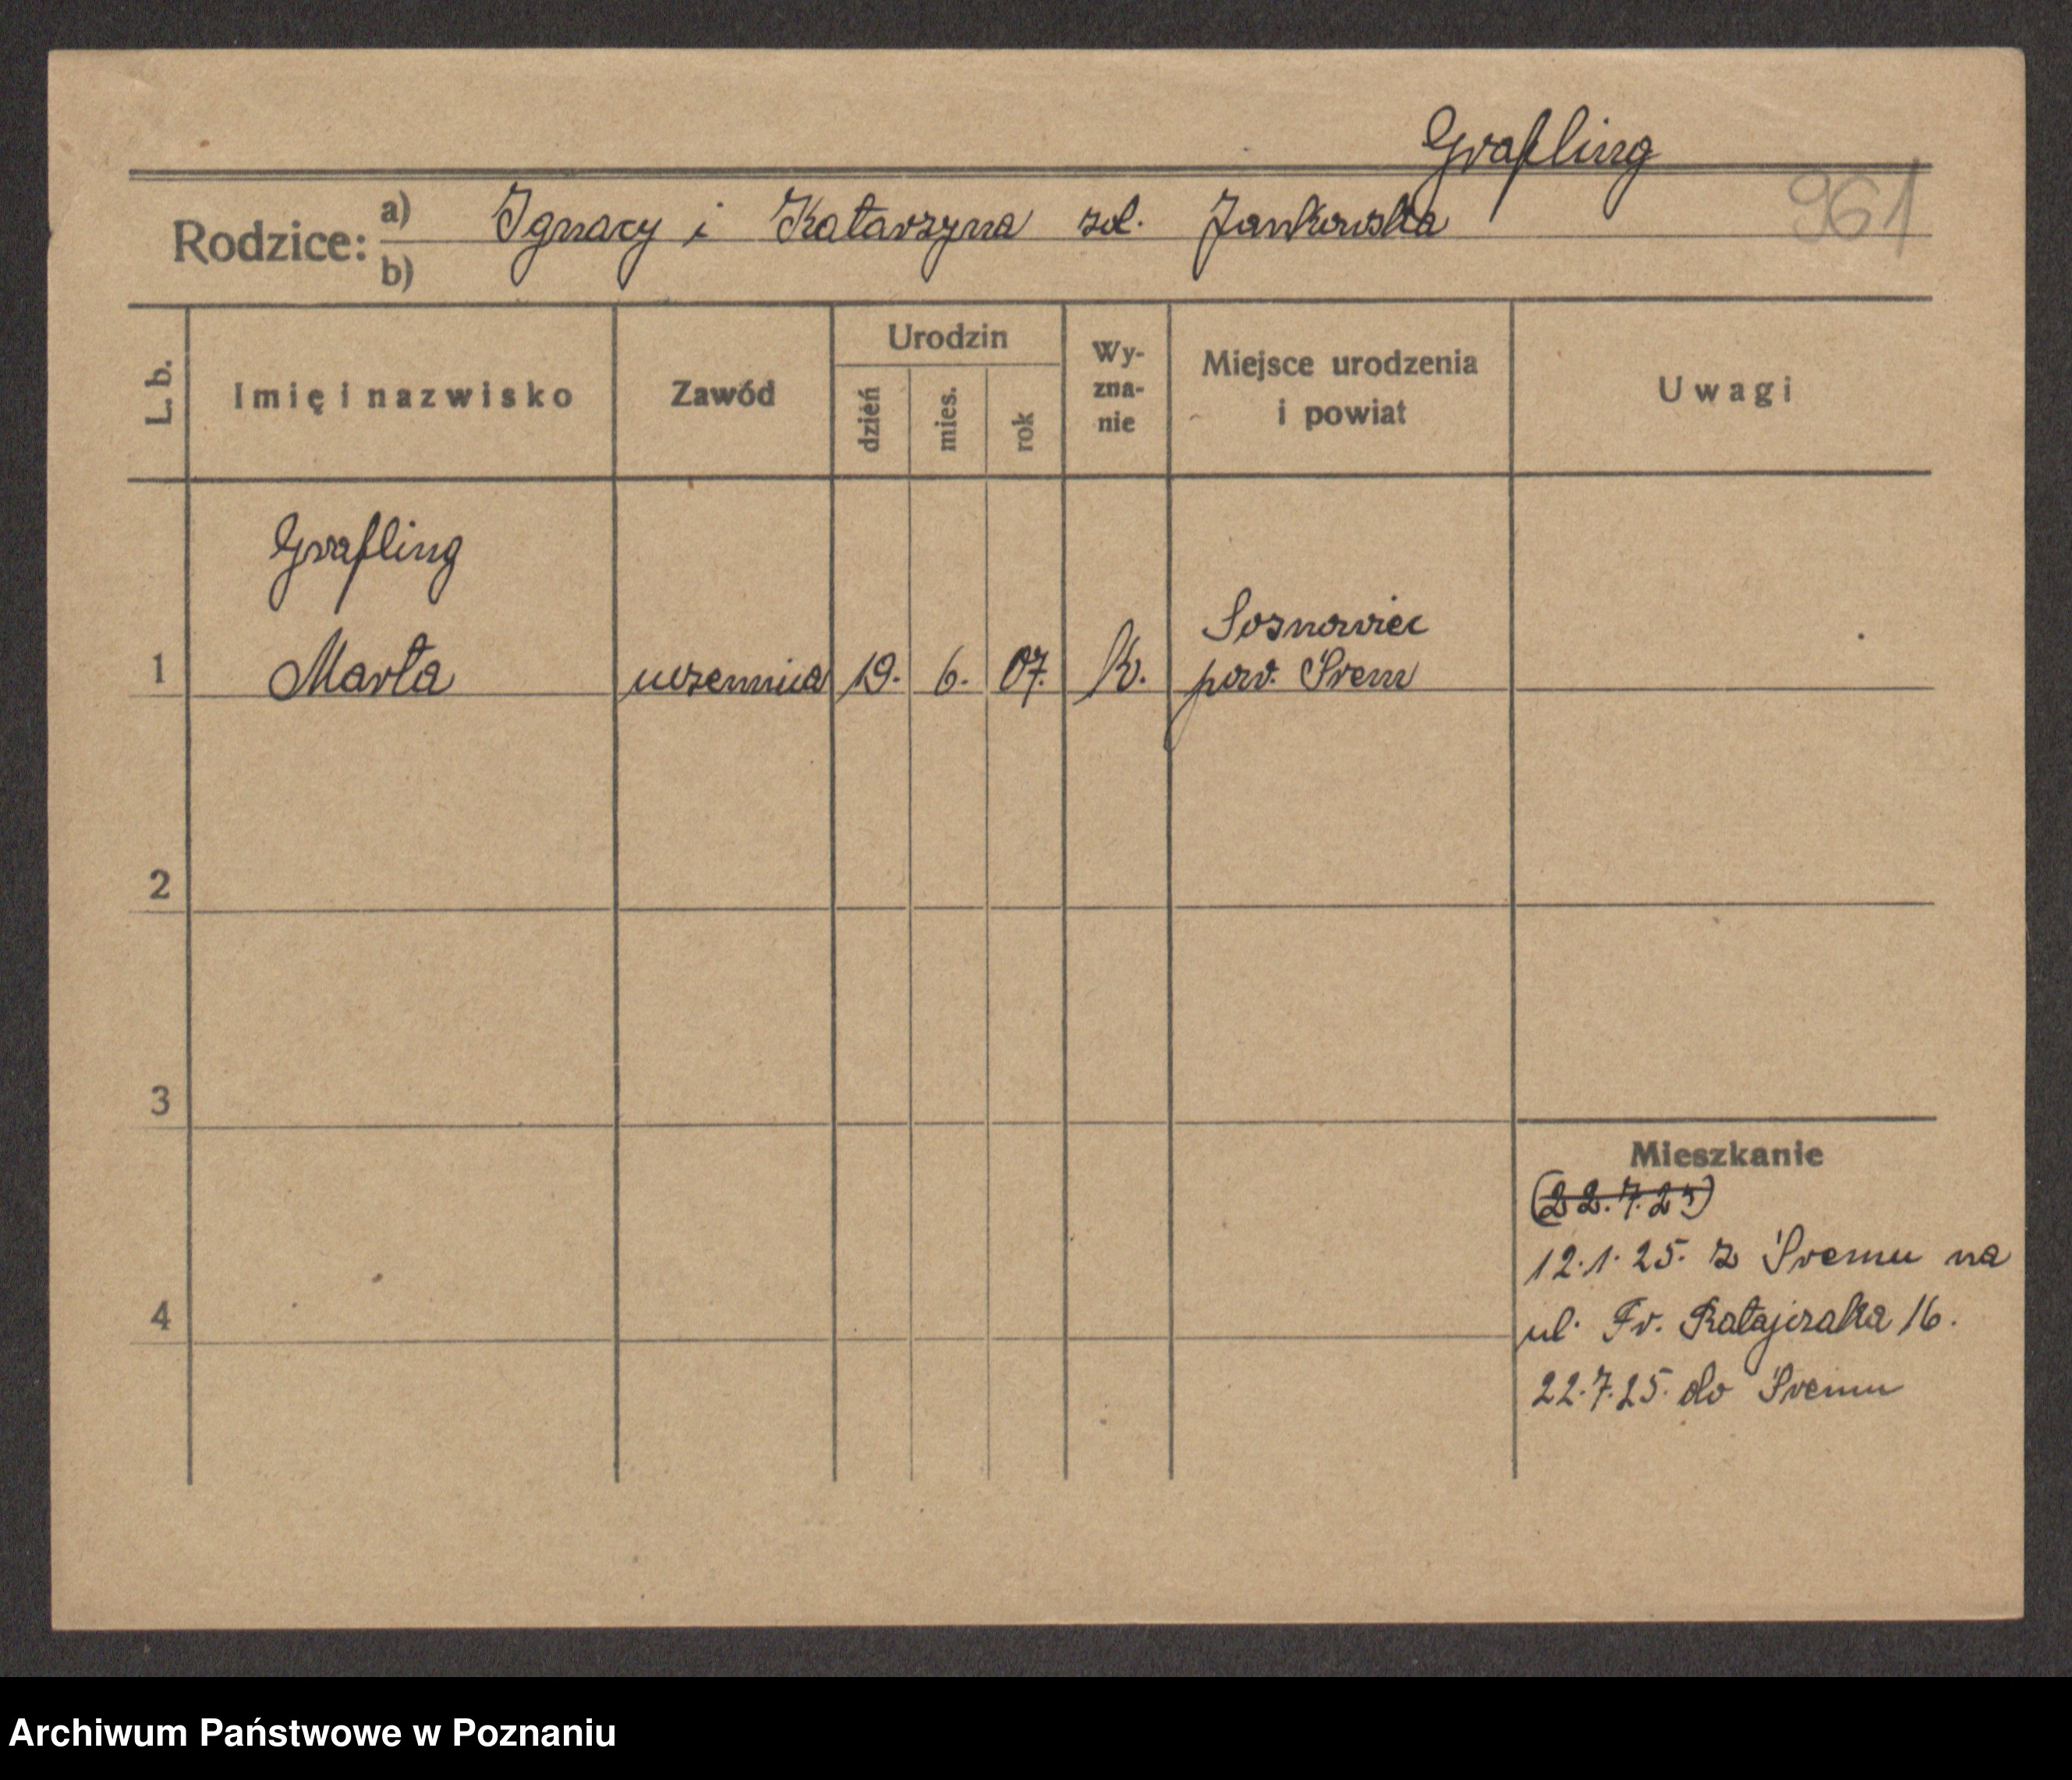 Grafling
961
Rodzice: a) Ignacy i Katarzyna zd. Jankowska
b)
L. b.
Imię i nazwisko
Zawód
Urodzin
dzień
mies.
rok
Wy-
zna-
nie
Miejsce urodzenia
i powiat
Uwagi
Grafling
1 Marta uczennica 19. 6. 07. K. Sosnowiec
pow. Śrem
2
3
4
Mieszkanie
(22.7.25)
12.1.25. z Śremu na
ul. Fr. Ratajczaka 16.
22.7.25. do Śremu
Archiwum Państwowe w Poznaniu